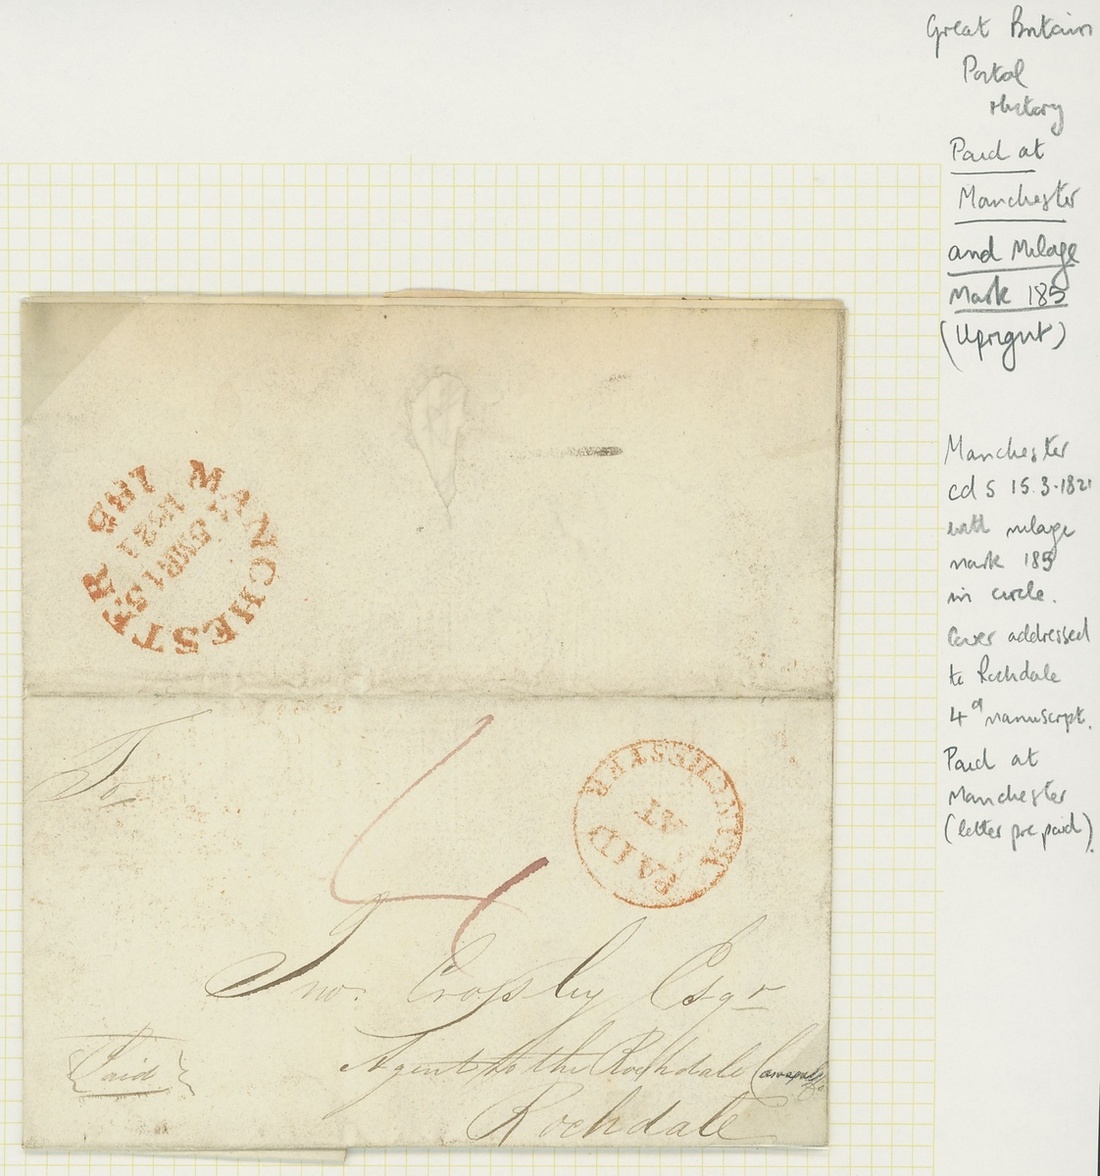 Great Britain
Postal
History
Paid at
Manchester
and Milage
Mark 185
(Upright)
Manchester
cds 15.3.1821
with milage
mark 185
in circle.
Cover addressed
to Rochdale
4d manuscript.
Paid at
Manchester
(letter pre paid).
MANCHESTER
185
MR15
1821
PAID
AT
MANCHESTER
To
4
Jno. Crossley Esqr
Agent to the Rochdale
Rochdale
Paid